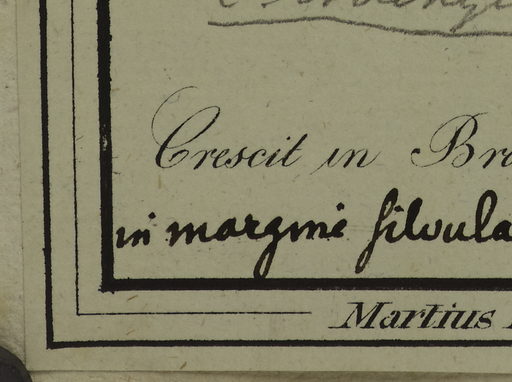 Crescit in Bra
in margine silvula
Martius